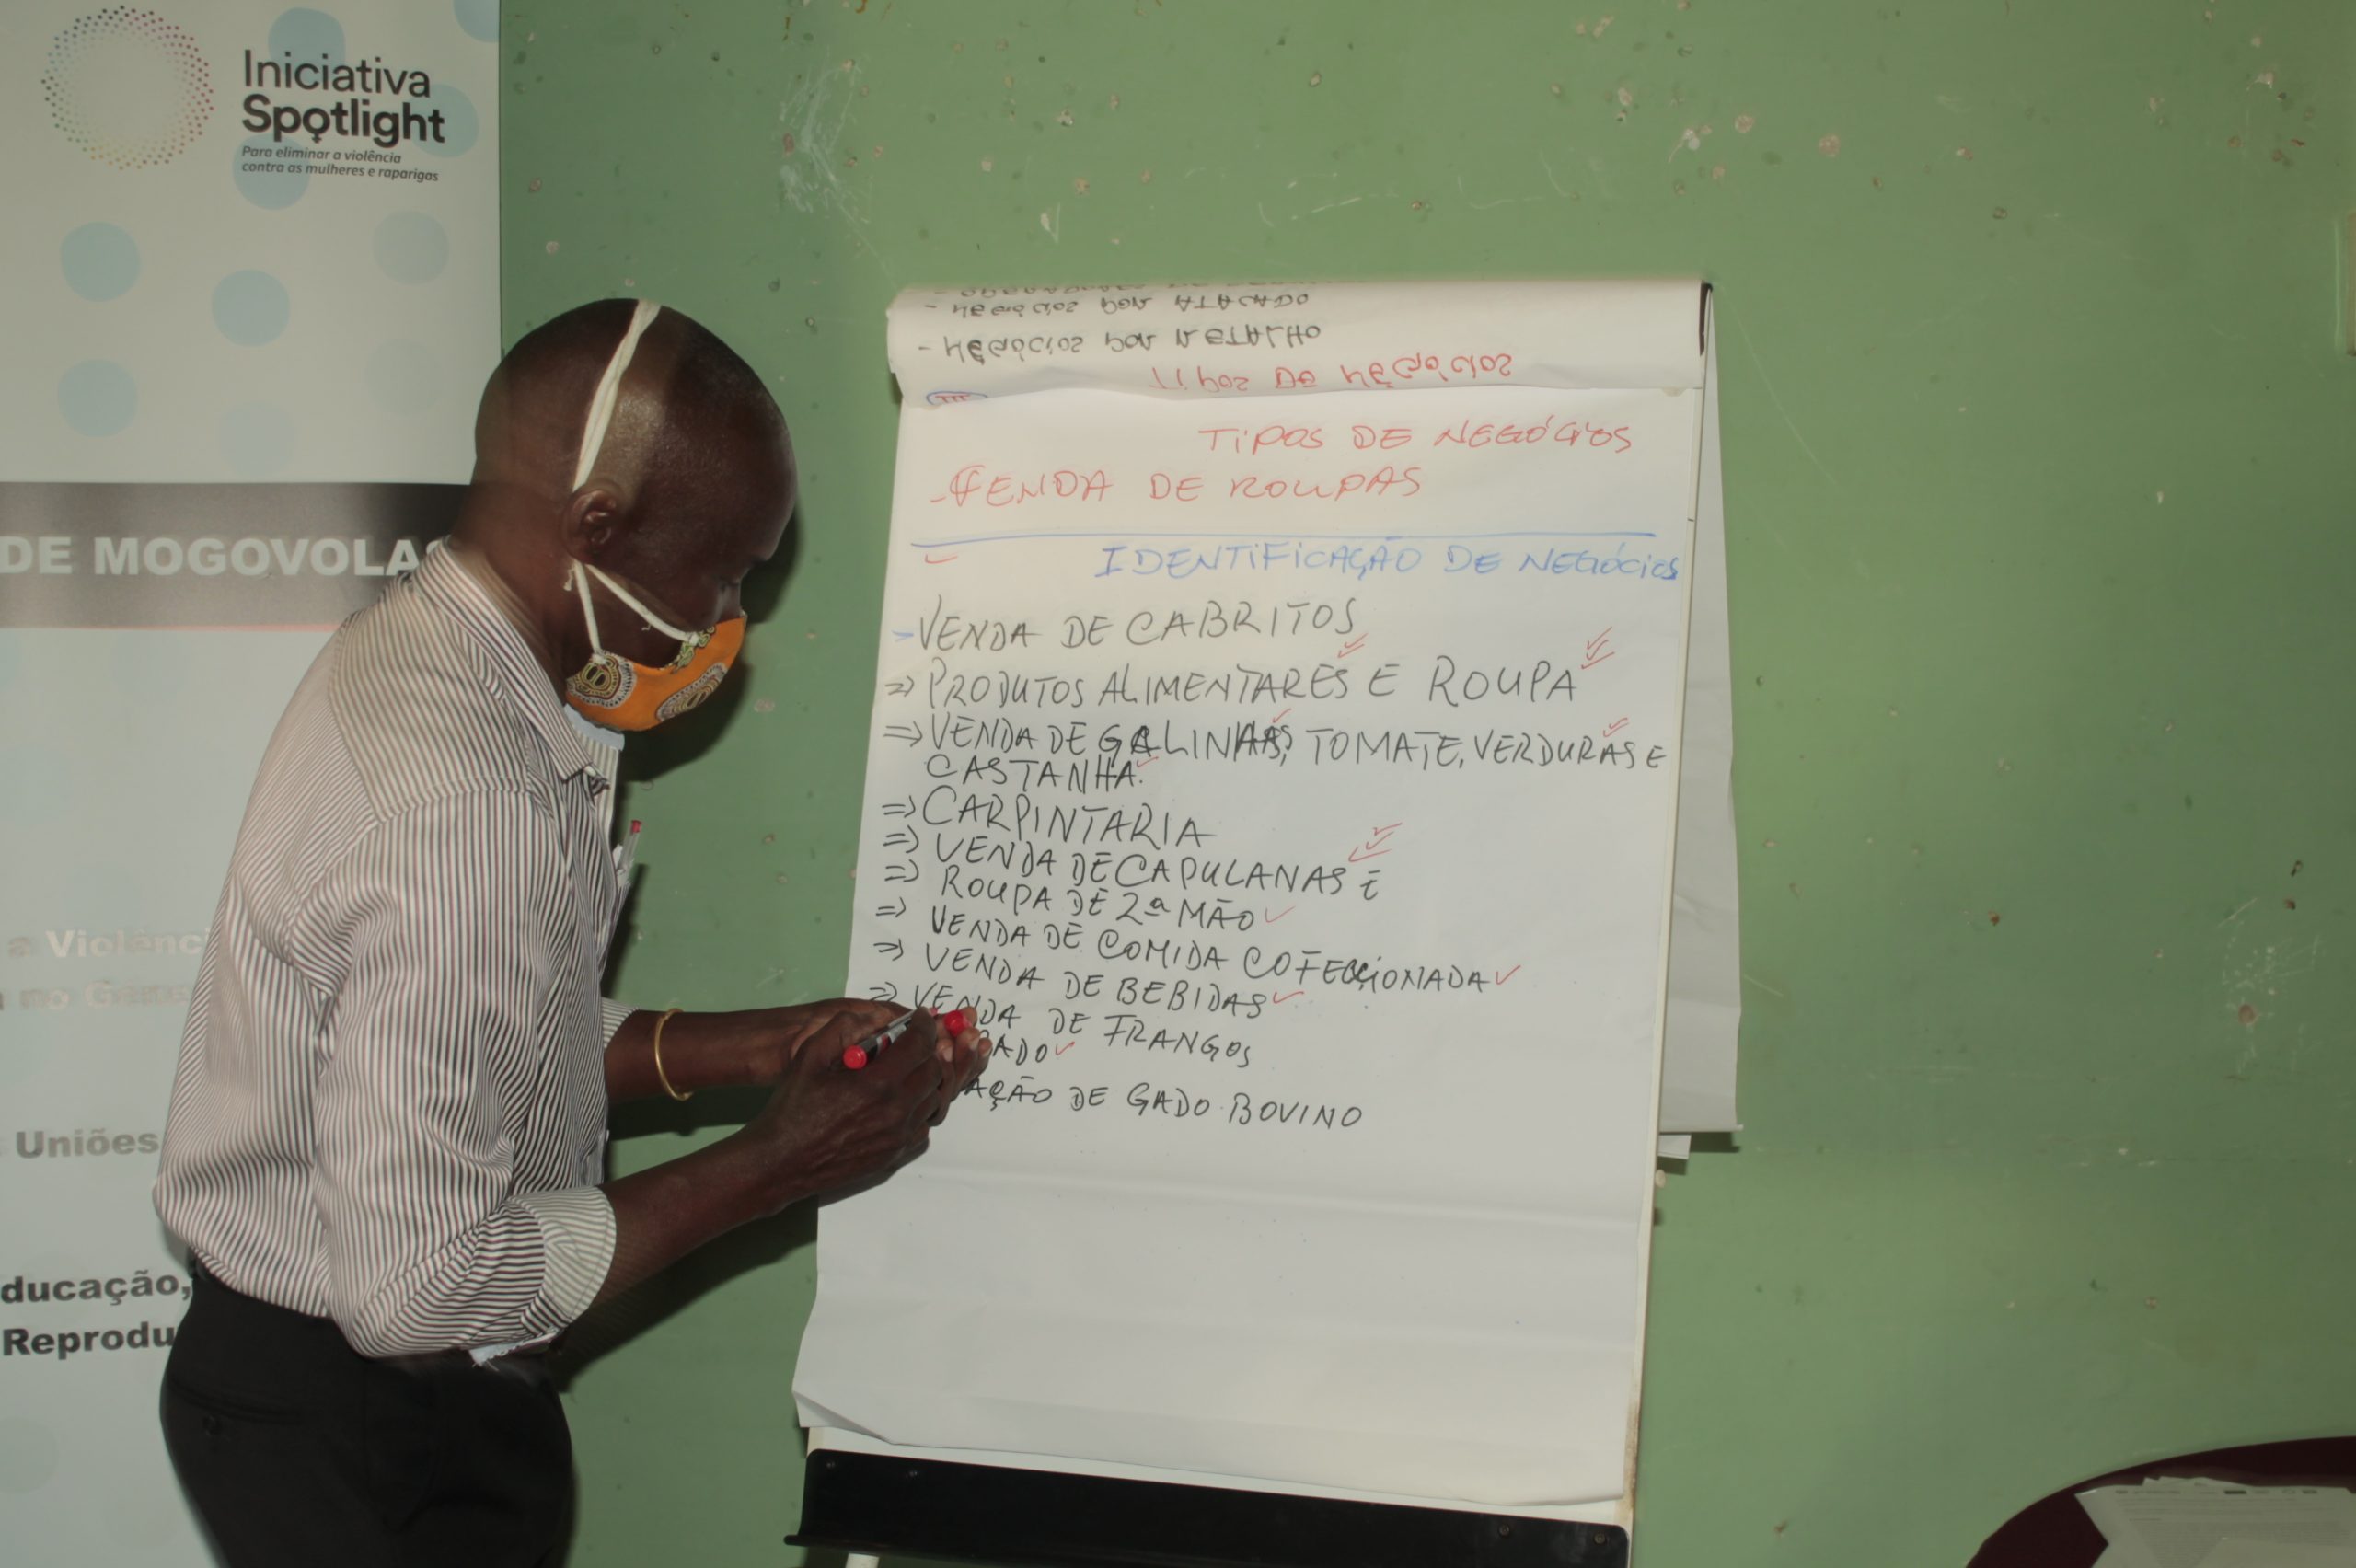 Iniciativa
Spotlight
Para eliminar a violência
contra as mulheres e raparigas
DE MOGOVOLAS
a Violênci
Uniões
ducação,
Reprodu
- NEGÓCIOS POR ATACADO
- NEGÓCIOS POR RETALHO
TIPOS DE NEGÓCIOS
III
TIPOS DE NEGÓCIOS
- VENDA DE ROUPAS
IDENTIFICAÇÃO DE NEGÓCIOS
- VENDA DE CABRITOS
=> PRODUTOS ALIMENTARES E ROUPA
=> VENDA DE GALINHAS, TOMATE, VERDURAS E
CASTANHA.
=> CARPINTARIA
=> VENDA DE CAPULANAS E
=> ROUPA DE 2ª MÃO
=> VENDA DE COMIDA COFECCIONADA
=> VENDA DE BEBIDAS
=> VENDA DE FRANGOS
ADO
AÇÃO DE GADO BOVINO